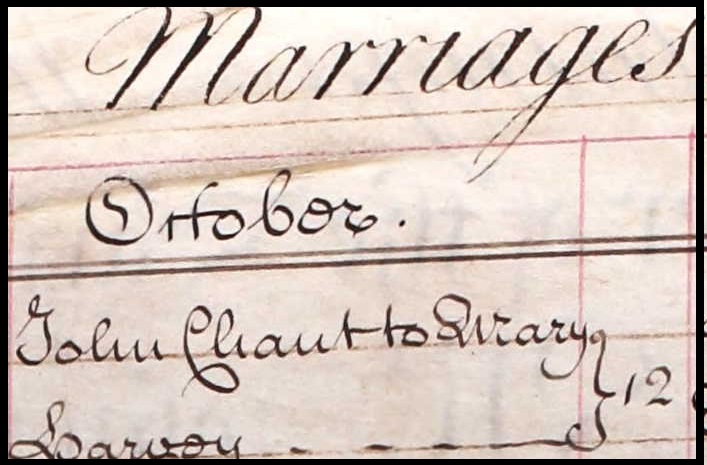 Marriages
October.
John Chant to Mary
Harvey - - - 12